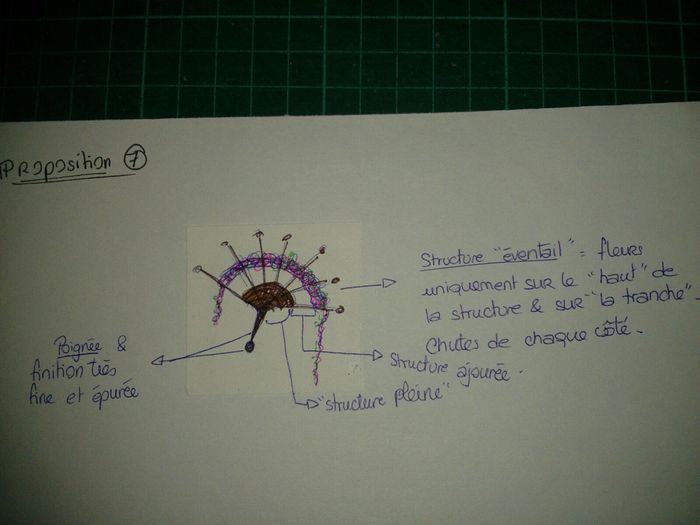 Proposition ⑦
Structure "éventail" = fleurs
uniquement sur le "haut" de
la structure & sur "la tranche"
Chutes de chaque côté.
Structure ajourée.
"structure pleine"
Poignée &
finition très
fine et épurée